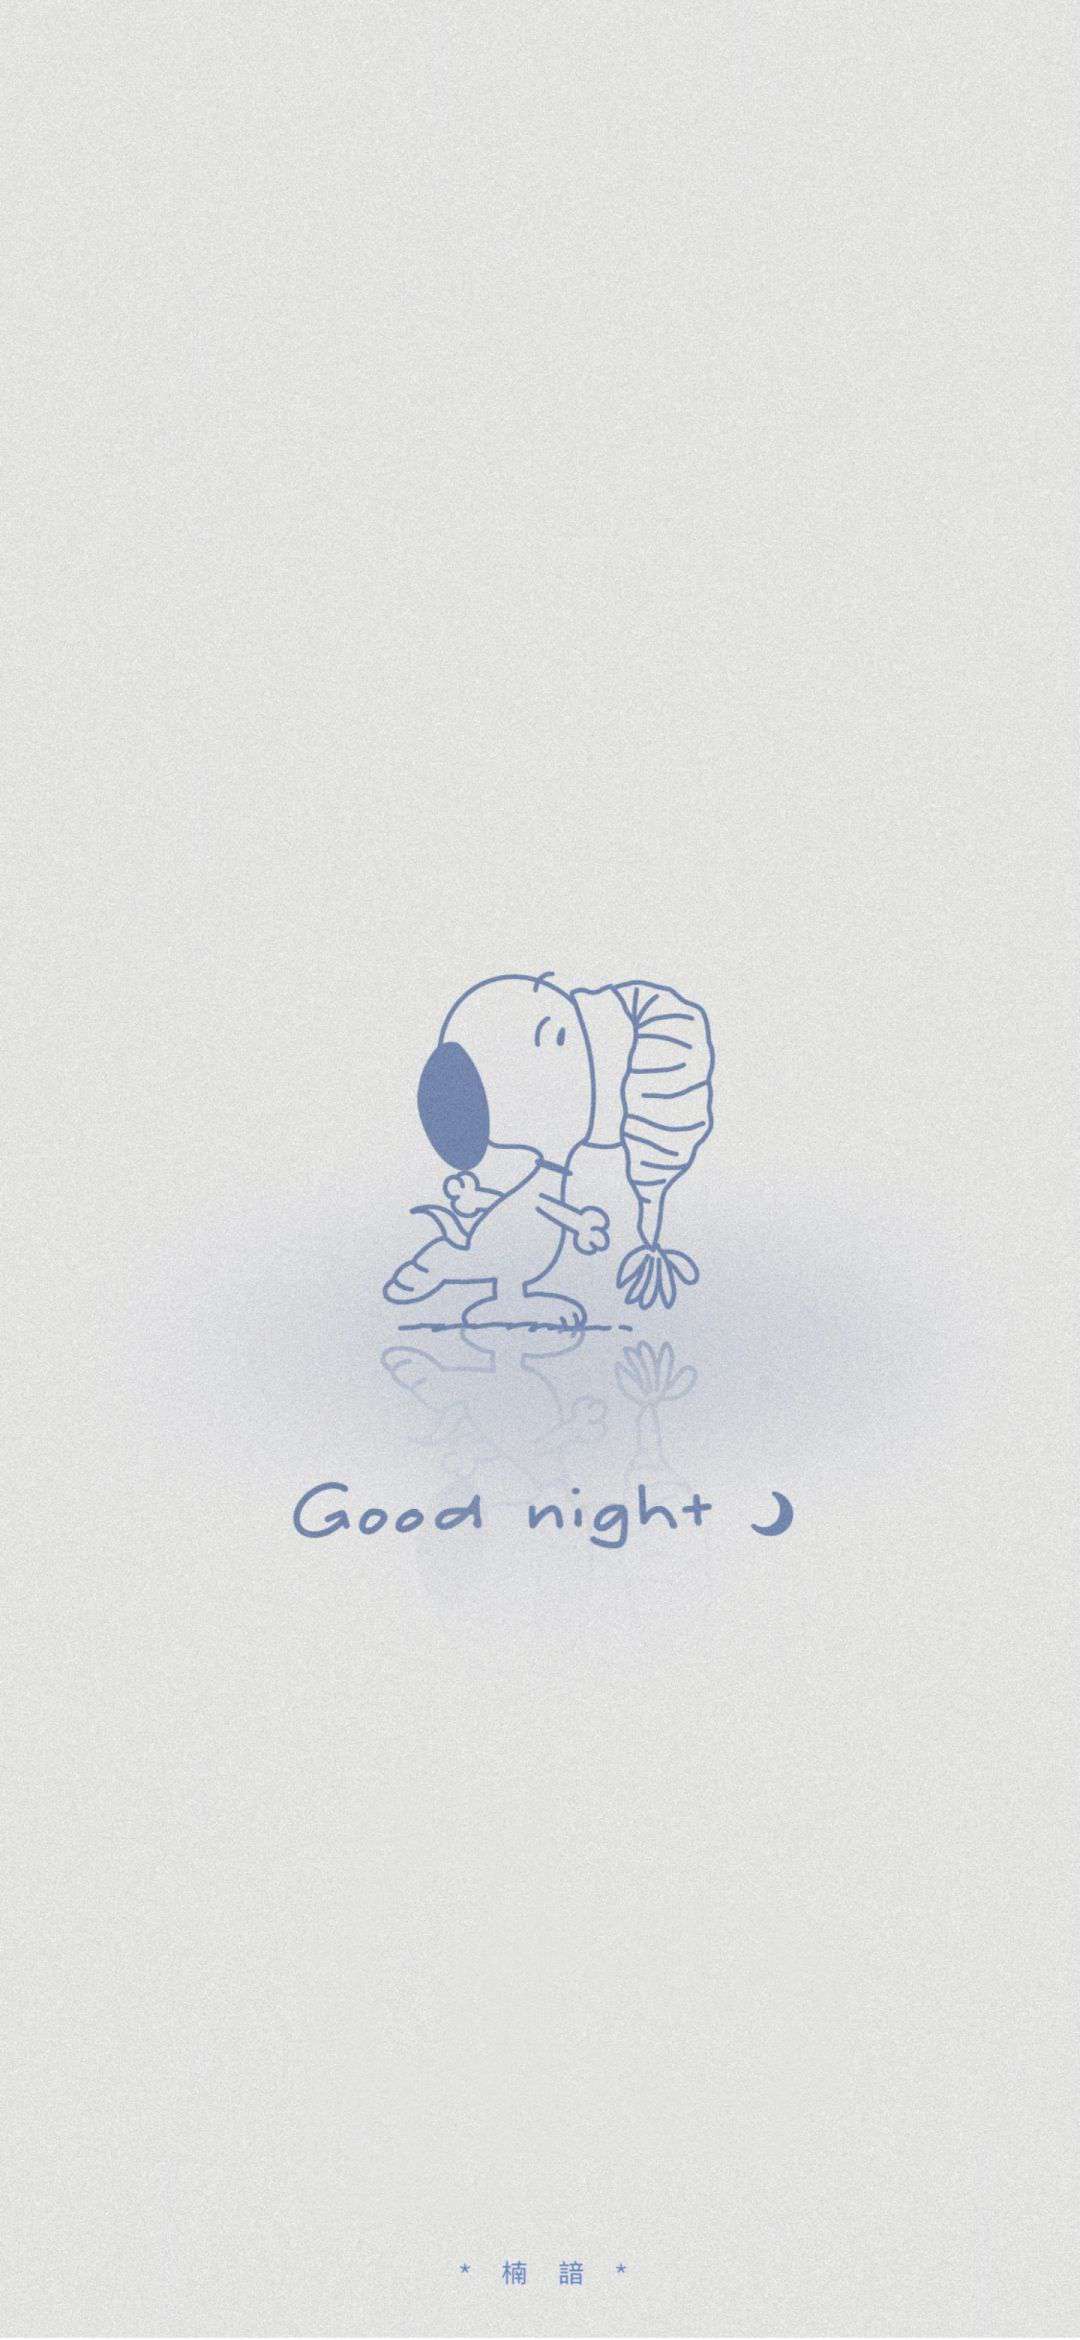 Good night
* 楠 諳 *